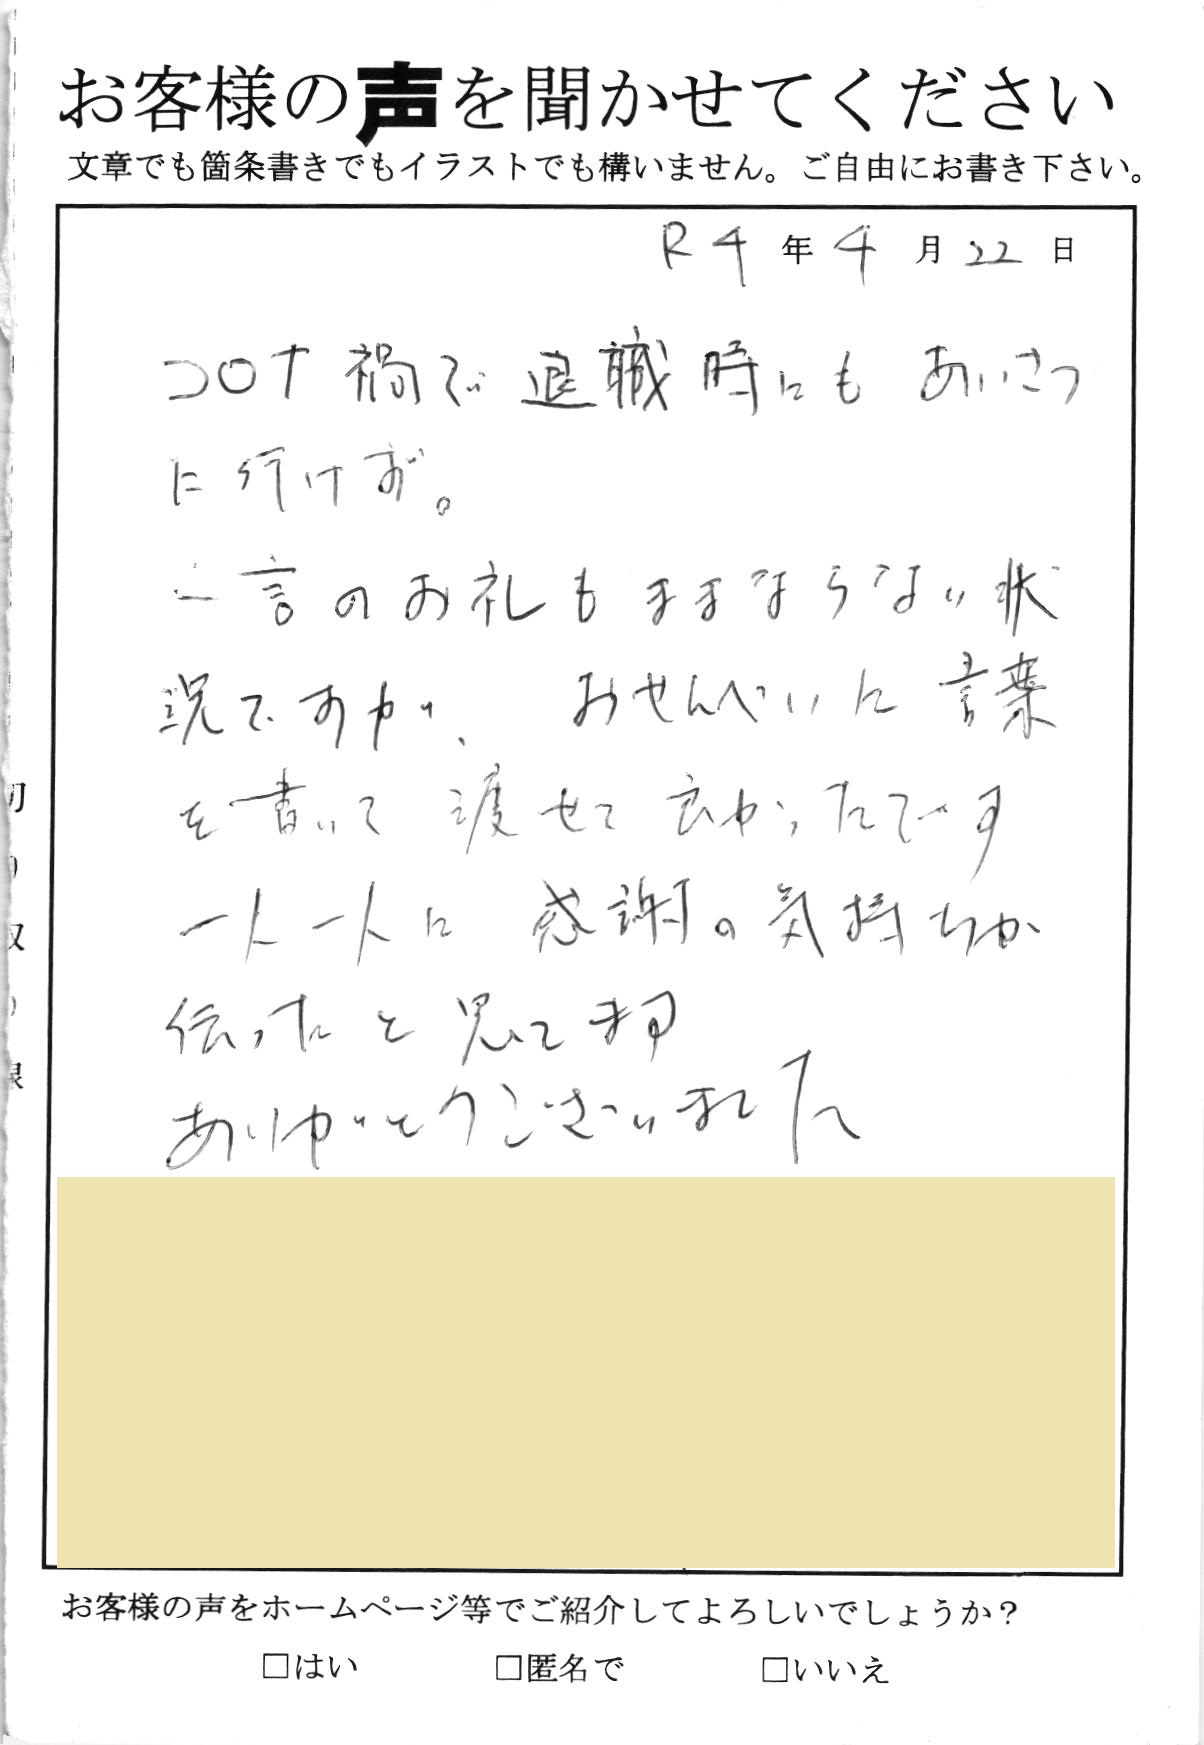 お客様の声を聞かせてください
文章でも箇条書きでもイラストでも構いません。ご自由にお書き下さい。
R4年4月22日
コロナ禍で退職時にもあいさつ
に行けず。
一言のお礼もままならない状
況ですが、おせんべいに言葉
を書いて渡せて良かったです
一人一人に感謝の気持ちか
伝ったと思てます
ありがとうございました
お客様の声をホームページ等でご紹介してよろしいでしょうか？
□はい □匿名で □いいえ